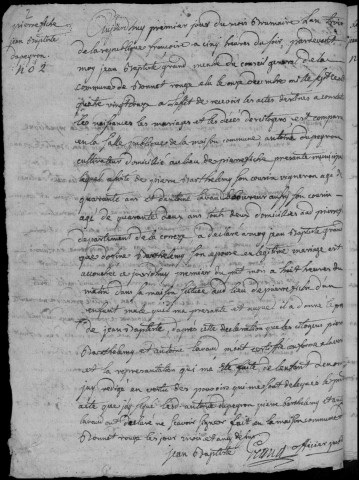 pierrefiche
jean Baptiste
Dupeyron
N° 2
aujourdhuy premier jour du mois frumaire l'an trois
de la republique francoise a cinq heures du soir pardevant
moy jean Baptiste grand membre du conseil general de la
commune de Bonnet rouge elu le onze decembre mil sept cent
quatre vingt douze a l'effet de recevoir les actes destines a constater
les naissances les mariages et les deces des citoyens est comparu
en la salle publique de la maison commune antoine dupeyron
cultivateur domicilié au lieu de pierrefiche presente municipalité
lequel assisté de pierre Barthelemy son cousin vigneron agé de
quarante ans et d'antoine lavau laboureur aussy son cousin
agé de quarante deux ans tous deux domiciliés au
departement de la correze a declaré a moy jean Baptiste grand
que Barthelemy son epouse en legitime mariage est
accouchée aujourdhuy premier du present mois a huit heures du
matin dans sa maison située au lieu de pierrefiche d'un
enfant male qu'il me presente et auquel il a donné le prenom
de jean Baptiste, d'apres cette declaration que les citoyens pierre
Barthelemy et antoine lavaud m'ont certiffié conforme a la verité
et la representation qui m'a eté faite de l'enfant denommé
j'ay redigé en vertu des pouvoirs qui me sont delegués le present
acte que j'ay signé led. antoine dupeyron pierre barthelemy et antoine
lavau ont declaré ne scavoir signer fait en la maison commune de
Bonnet rouge les jour mois et an que dessus
jean Baptiste Grand officier public